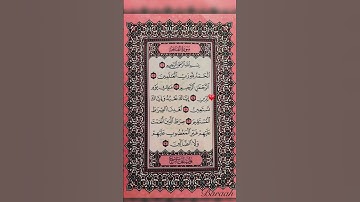 سورة الفاتحة
بِسْمِ اللَّهِ الرَّحْمَٰنِ الرَّحِيمِ
الْحَمْدُ لِلَّهِ رَبِّ الْعَالَمِينَ
الرَّحْمَٰنِ الرَّحِيمِ مَٰلِكِ يَوْمِ
الدِّينِ إِيَّاكَ نَعْبُدُ وَإِيَّاكَ
نَسْتَعِينُ اهْدِنَا الصِّرَاطَ
الْمُسْتَقِيمَ صِرَاطَ الَّذِينَ أَنْعَمْتَ
عَلَيْهِمْ غَيْرِ الْمَغْضُوبِ عَلَيْهِمْ
وَلَا الضَّالِّينَ
Baraah